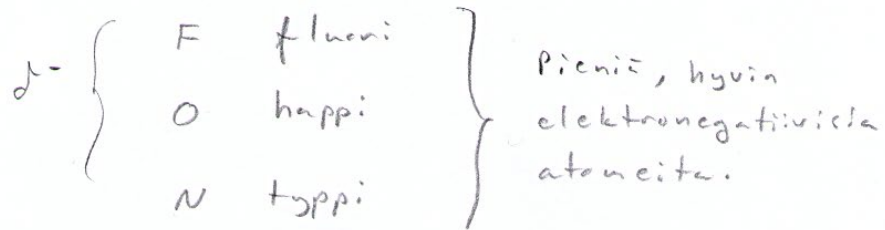 δ-
F fluori
O happi
N typpi
Pieniä, hyvin
elektronegatiivisia
atomeita.